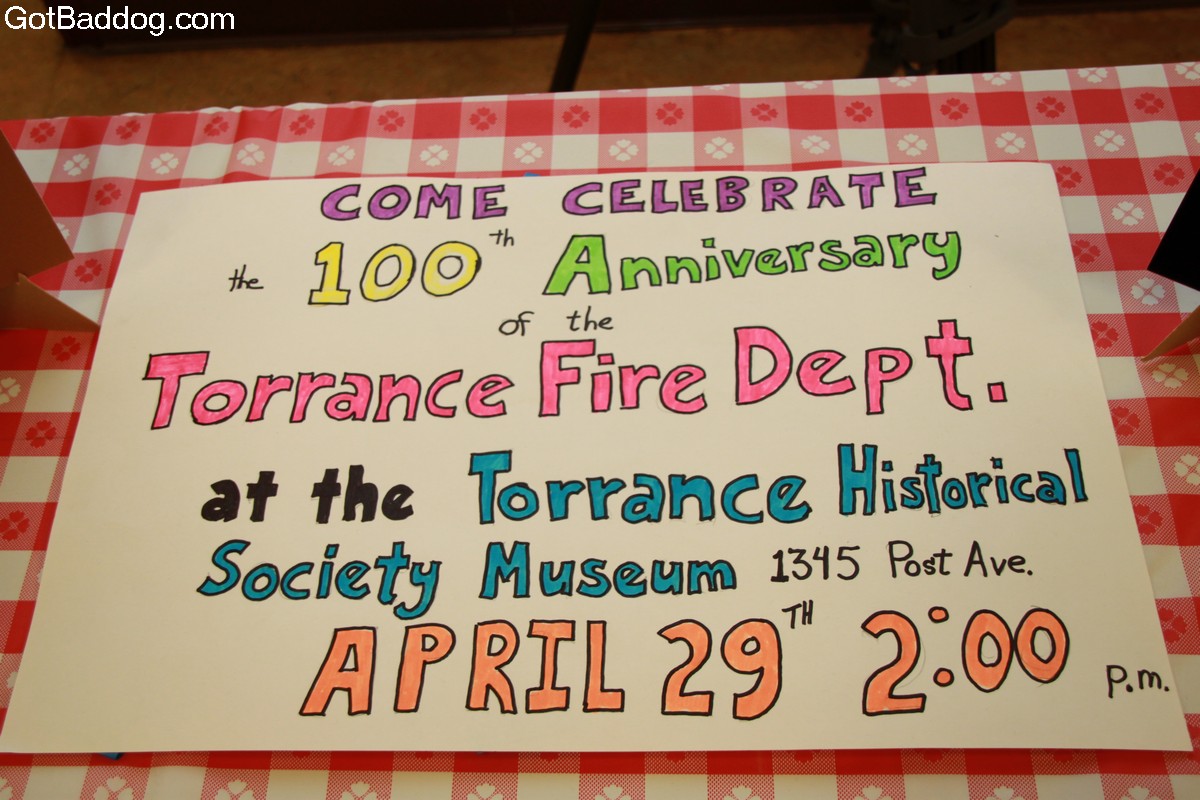 GotBaddog.com
COME CELEBRATE
the 100th Anniversary
of the
Torrance Fire Dept.
at the Torrance Historical
Society Museum 1345 Post Ave.
APRIL 29TH 2:00 p.m.